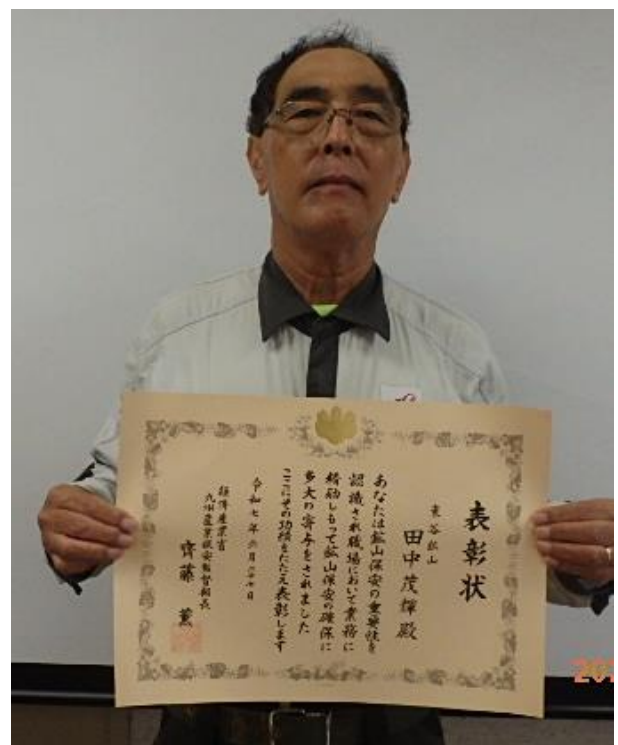 表彰状
東谷鉱山
田中茂輝殿
あなたは鉱山保安の重要性を
認識され職場において業務に
精励しもって鉱山保安の確保に
多大の寄与をされました
ここにその功績をたたえ表彰します
令和七年六月二十七日
経済産業省
九州産業保安監督部長
齊藤薫